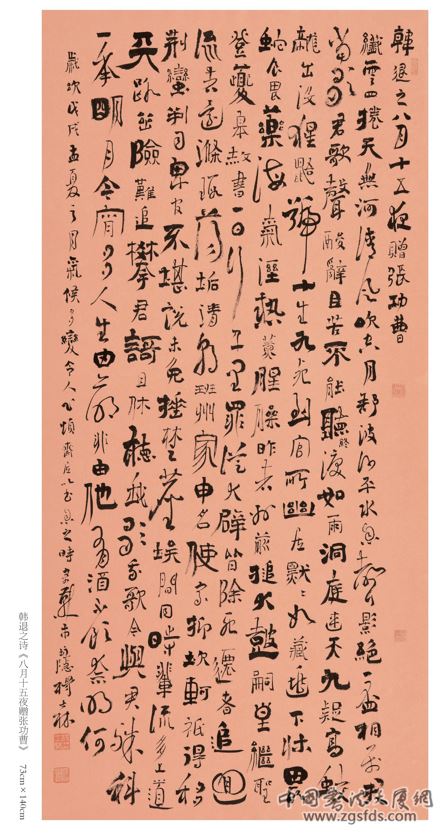 韓退之八月十五夜贈張功曹
纖雲四捲天無河清風吹空月舒波沙平水息聲影絕一盃相屬君
當歌君歌聲酸辭且苦不能聽終淚如雨洞庭連天九疑高蛟
龍出沒猩鼯號十生九死到官所幽居默默如藏逃下牀畏
蛇食畏藥海氣溼蟄熏腥臊昨者州前搥大鼓嗣皇繼聖
登夔皋赦書一日行萬里罪從大辟皆除死遷者追迴
流者還滌瑕蕩垢清朝班州家申名使家抑坎軻祗得移
荊蠻判司卑官不堪說未免捶楚塵埃間同時輩流多上道
天路幽險難追攀君歌且休聽我歌我歌今與君殊科
一年明月今宵多人生由命非由他有酒不飲奈明何
歲次戊戌孟夏之月氣候多變令人心煩齋居以書息之時
韩退之诗《八月十五夜赠张功曹》 73cm×140cm
中国书法大厦网
www.zgsfds.com